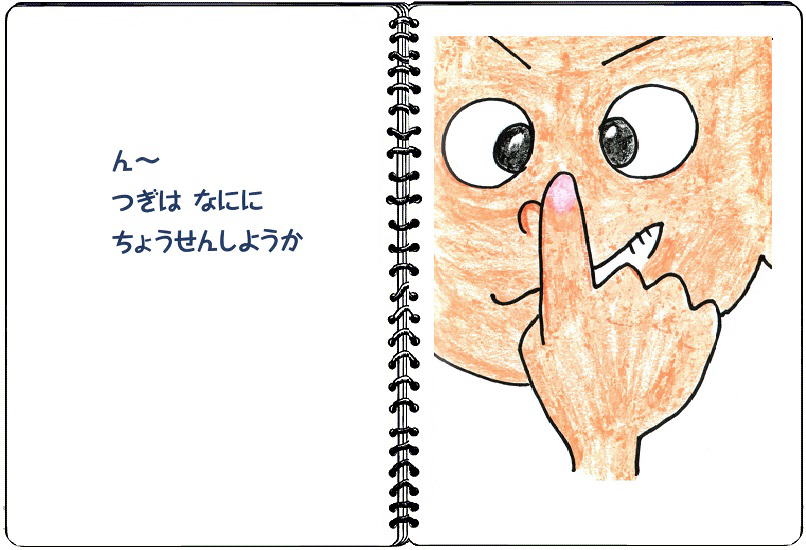 ん～
つぎは なにに
ちょうせんしようか